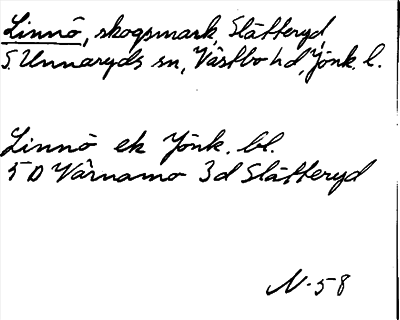 Linnö, skogsmark, Slätteryd,
S. Unnaryds sn, Västbo hd, Jönk. l.
Linnö ek Jönk. bl.
5 D Värnamo 3d Slätteryd
N-58